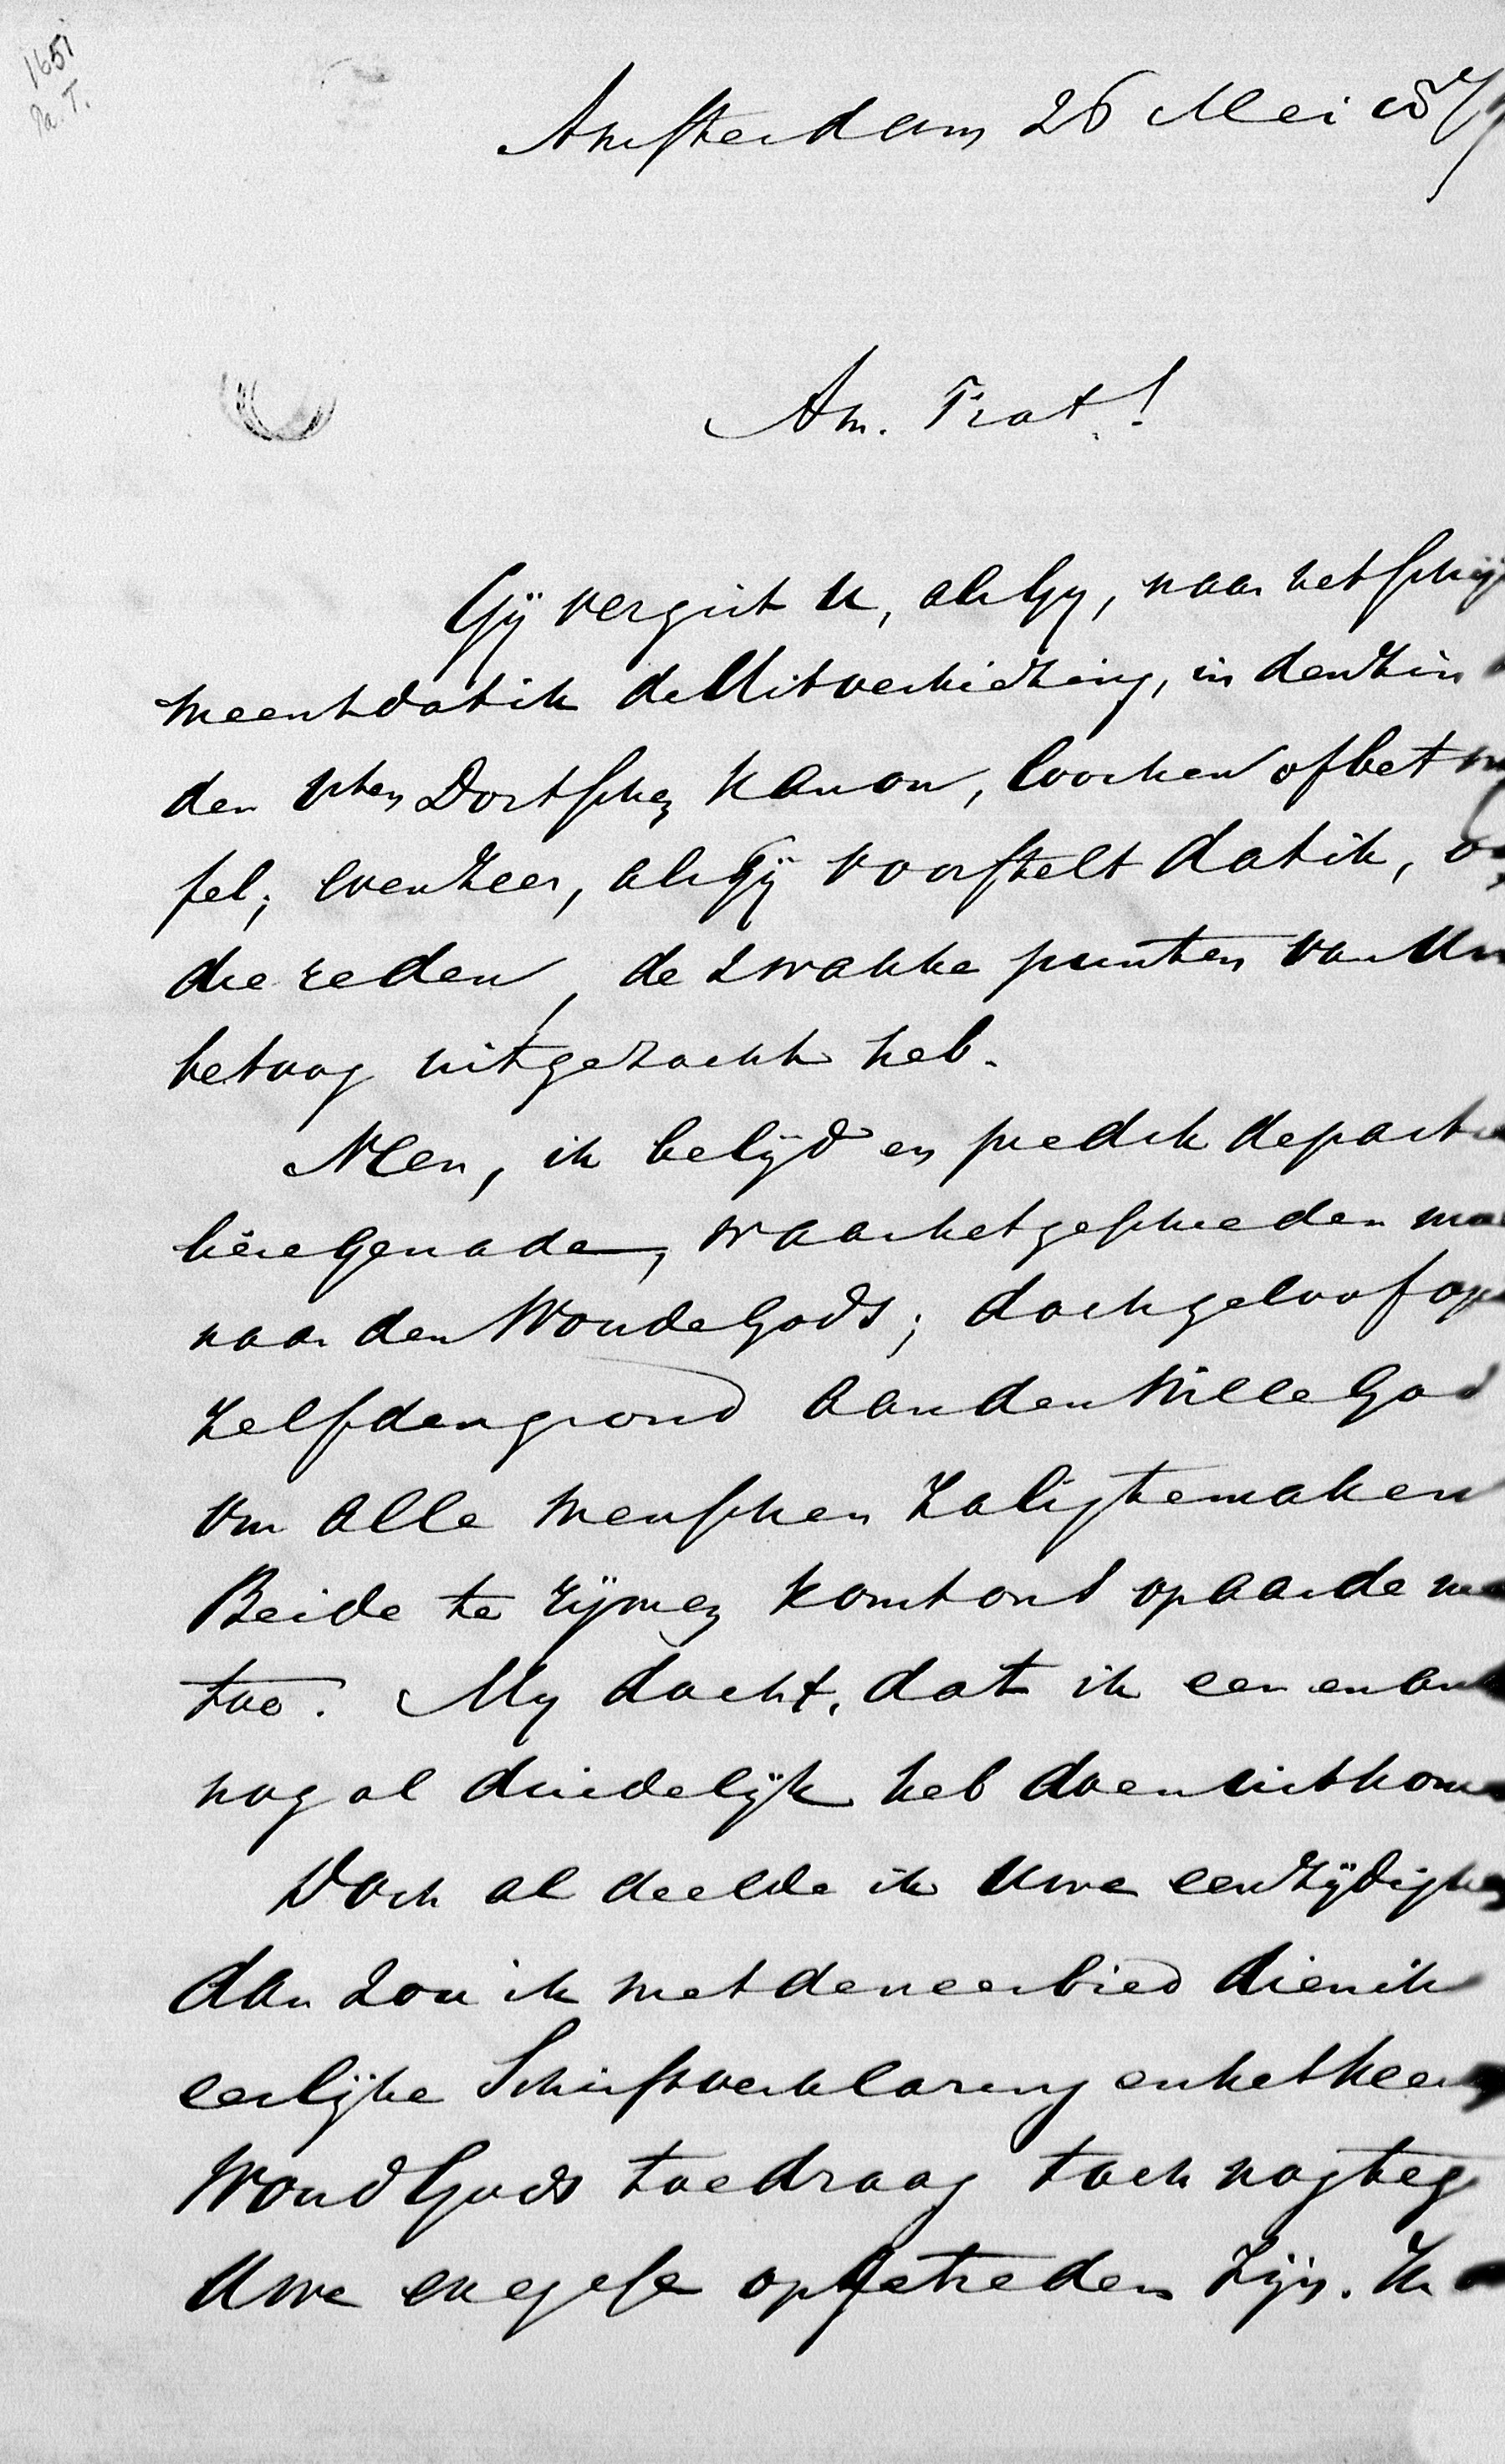 1651
Pa. T.
Amsterdam 26 Mei 187
Am. Frat.!
Gij vergist U, als Gy, naar het schij
meent dat ik de Uitverkiezing, in den zin
den Vten Dortschen Kanon, loochen of betw
fel; evenzeer, als Gij voorstelt dat ik,
die reden, de zwakke punten van Uw
betoog uitgezocht heb.
Neen, ik belijd en predik de particu
liere Genade, waar het geschieden moe
naar den Woorde Gods; doch geloof op
zelfden grond aan den Wille God
om alle menschen zalig te maken
Beide te rijmen komt ons op aarde n
toe. My docht, dat ik een en and
nog al duidelijk heb doen uitkom
Doch al deelde ik Uwe eenzijdighe
dan zou ik met den eerbied dien ik
eerlijke Schriftverklaring en het heer
Woord Gods toedraag toch nog teg
Uwe exegese opgetreden zijn. Ik